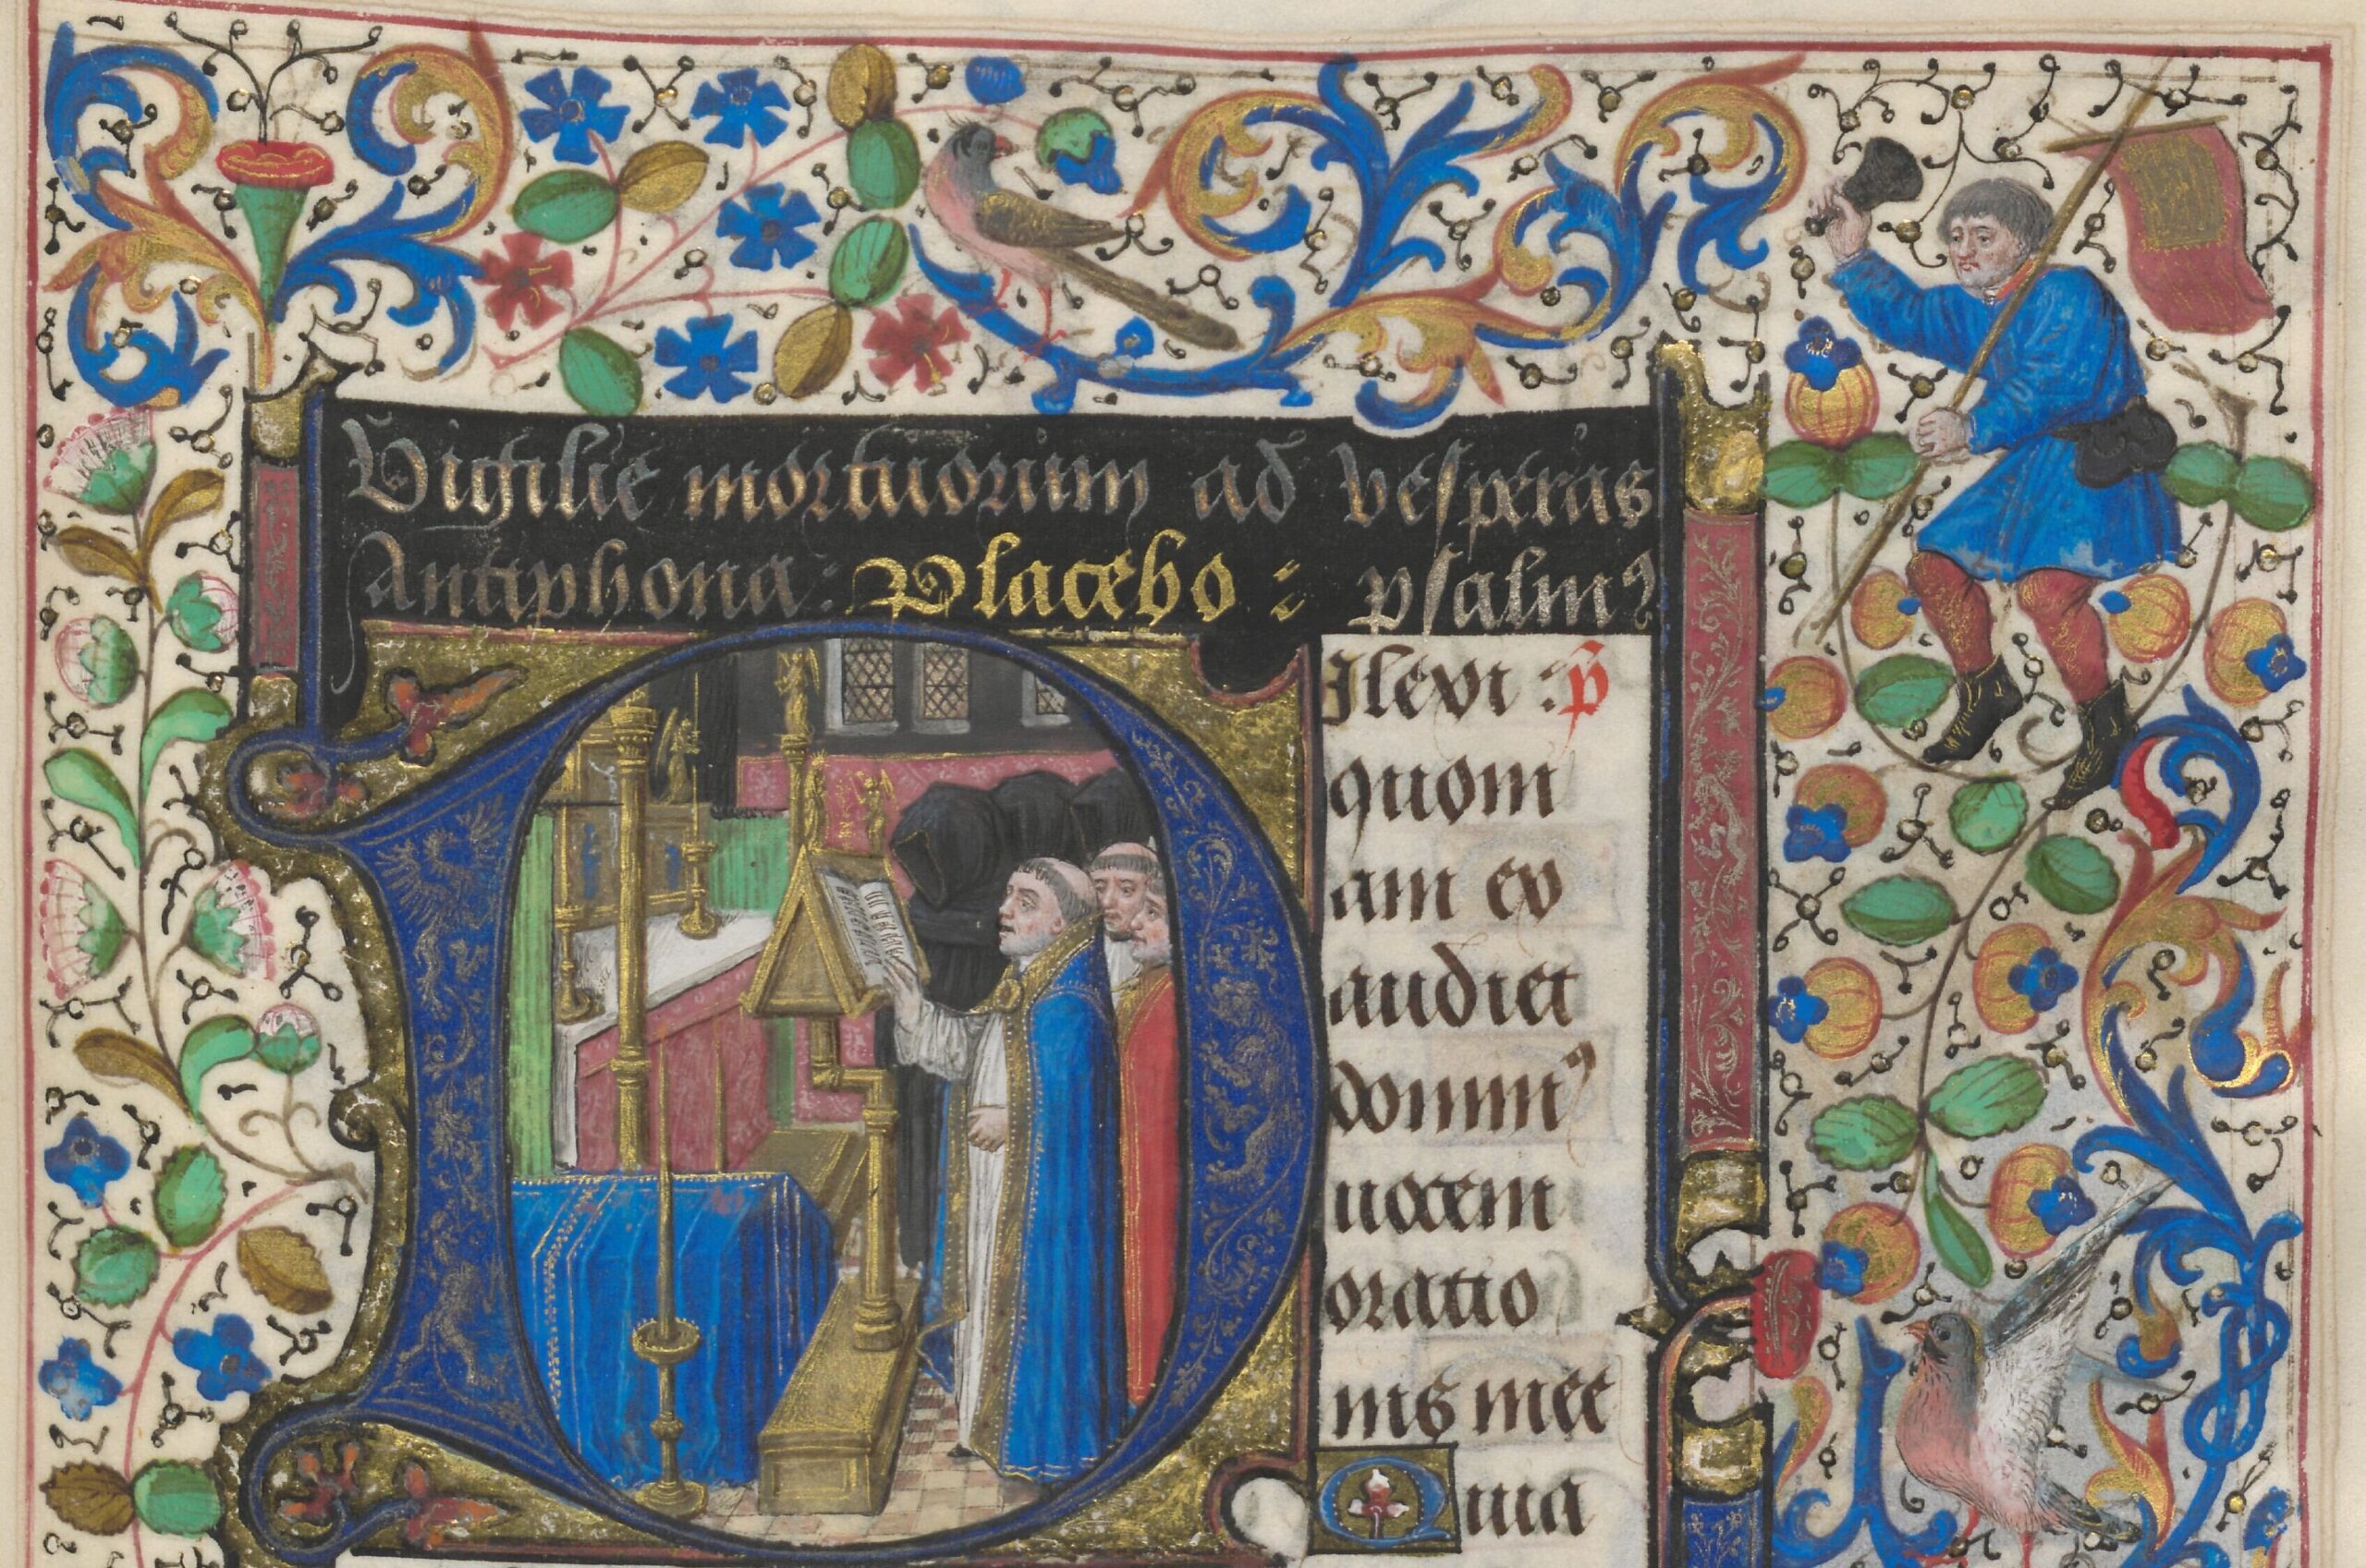 Vigilie mortuorum ad vesperas
Antiphona: Placebo: psalmꝰ
Dilexi: p̄
quoni
am ex
audiet
dominꝰ
uocem
oratio
nis mee
Quia